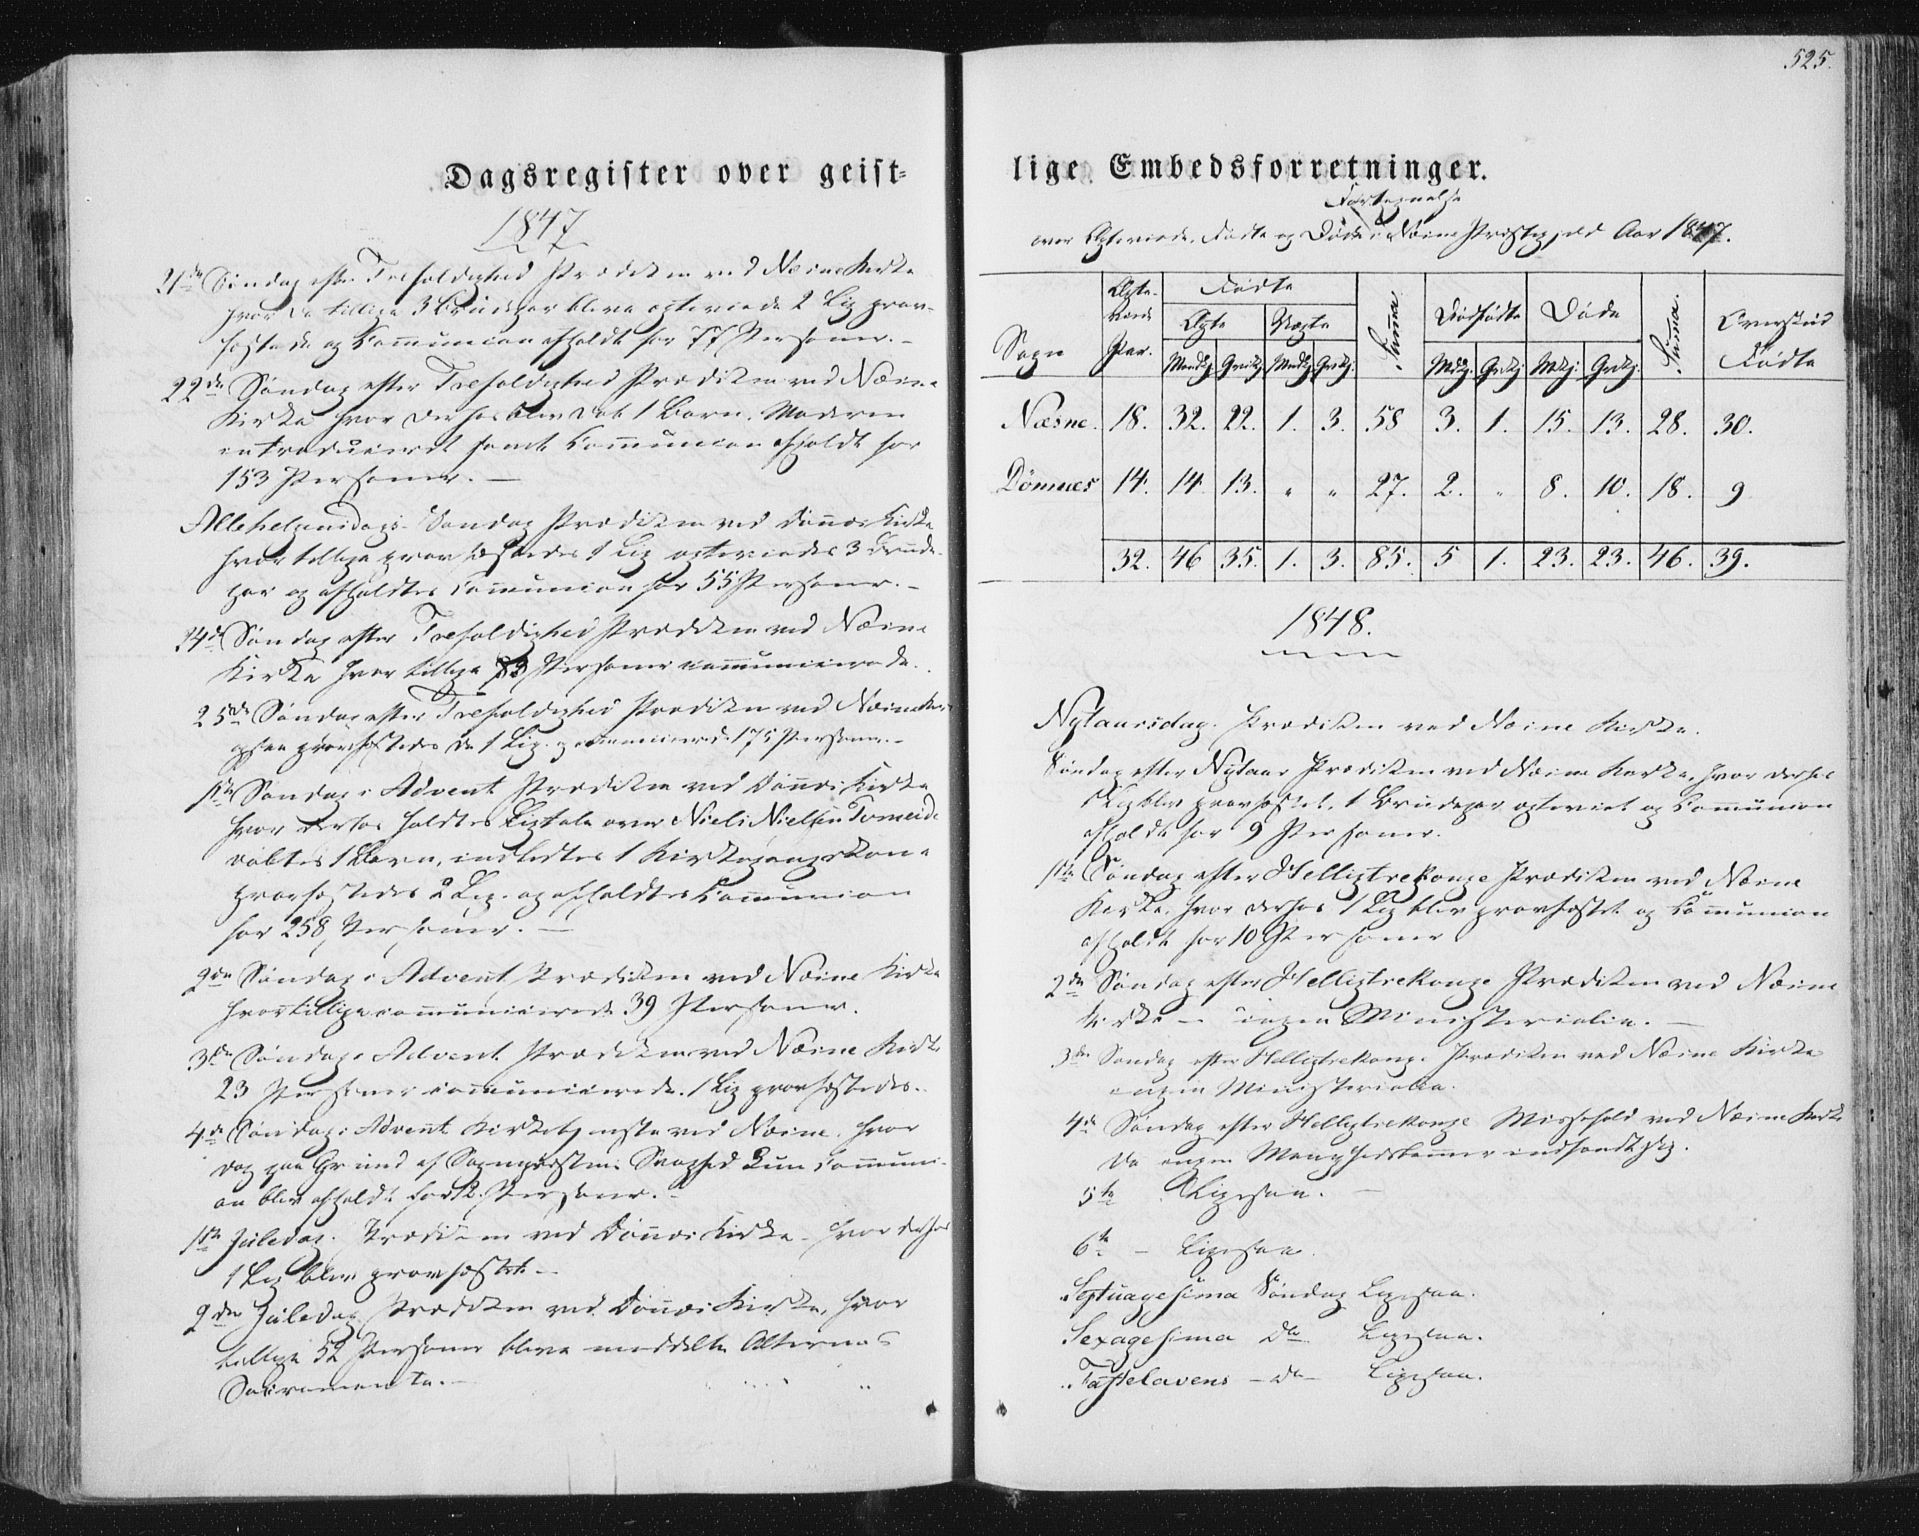 Dagsregister over geist-
1847
21de Søndag efter Trefoldighed Prædiken ved Næsne Kirke
hvor da tillige 3 Brudepar bleve ægteviede 2 Lig grav-
fæstede og Communion afholdt for 77 Personer. –
22de Søndag efter Trefoldighed Prædiken ved Næsne
Kirke hvor derhos blev døbt 1 Barn, Moderen
introduceret samt Communion afholdt for
153 Personer. –
Allehelgensdags Søndag Prædiken ved Dønnes Kirke
hvor tillige gravfæstedes 1 Lig ægteviedes 3 Brude-
par og afholdtes Communion for 55 Personer. –
24de Søndag efter Trefoldighed Prædiken ved Næsne
Kirke hvor tillige Personer communicerede.
25de Søndag efter Trefoldighed Prædiken ved Næsne Kirke
gravfæstedes da 1 Lig og communicerede 175 Personer. –
1ste Søndag i Advent Prædiken ved Dønnes Kirke
hvor derhos holdtes Ligtale over Niels Nielsen Tomeide
døbtes 1 Barn, indledtes 1 Kirkegangskone
gravfæstedes 2 Lig og afholdtes Communion
for 258 Personer. –
2den Søndag i Advent Prædiken ved Næsne Kirke
hvor tillige communicerede 39 Personer.
3de Søndag i Advent Prædiken ved Næsne Kirke
23 Personer communicerede. 1 Lig gravfæstedes.
4de Søndag i Advent Kirketjeneste ved Næsne, hvor
dog paa Grund af Sognepræstens Svaghed kun Communi-
on blev afholdt for 12 Personer. –
1ste Juledag. Prædiken ved Dønnes Kirke – hvor derhos
1 Lig blev gravfæstet. –
2den Juledag Prædiken ved Dønnes Kirke, hvor
tillige 52 Personer bleve meddelte Alterens
Sacramente. –
525.
lige Embedsforretninger.
Fortegnelse
over Ægteviede, Fødte og Døde i Næsne Præstegj. ved Aar 1847.
Sogn Ægte-viede Par. Fødte Ægte Uægte Mandkj. Qvidkj. Mndkj. Qvdkj. Suma. Dødfødte Mdkj. Qvdkj. Døde Mdkj. Qvdkj. Suma. Overskud Fødte
Næsne. 18. 32. 22. 1. 3. 58 3. 1. 15. 13. 28. 30.
Dönnæs 14. 14. 13. " " 27. 2. " 8. 10. 18. 9
32. 46 35. 1. 3. 85. 5 1. 23. 23. 46. 39.
1848.
Nytaarsdag. Prædiken ved Næsne Kirke.
Søndag efter Nytaar Prædiken ved Næsne Kirke, hvor derhos
1 Lig blev gravfæstet, 1 Brudepar ægteviet og Communion
afholdt for 9 Personer.
1ste Søndag efter Helligtrekonge Prædiken ved Næsne
Kirke, hvor derhos 1 Lig blev gravfæstet og Communion
afholdt for 10 Personer
2den Søndag efter Helligtrekonge Prædiken ved Næsne
Kirke – ingen Ministerialia. –
3die Søndag efter Helligtrekonge Prædiken ved Næsne Kirke
ingen Ministerialia.
4de Søndag efter Helligtrekonge Messefald ved Næsne Kirke
da ingen Menighedslemmer indfandt sig.
5te Ligesaa. –
6te – Ligesaa.
Septuagesima Søndag Ligesaa.
Sexagesima do Ligesaa.
Fastelavens – do – Ligesaa.